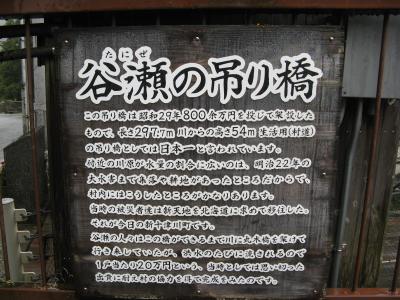 たにぜ
谷瀬の吊り橋
この吊り橋は昭和29年800余万円を投じて架設した
もので、長さ297.7m 川からの高さ54m 生活用(村道)
の吊り橋としては日本一と言われています。
付近の川原が水量の割合に広いのは、明治22年の
大水害まで集落や耕地があったところだからで、
村内にはこうしたところがかなりあります。
当時の被災者達は新天地を北海道に求めて移住した。
それが今日の新十津川町です。
谷瀬の人々はこの橋ができるまで川に丸木橋を架けて
行き来していたが、洪水のたびに流されるので
1戸当たり20万円という、当時としては思い切った
出費に耐え村の協力を得て完成をみたのです。